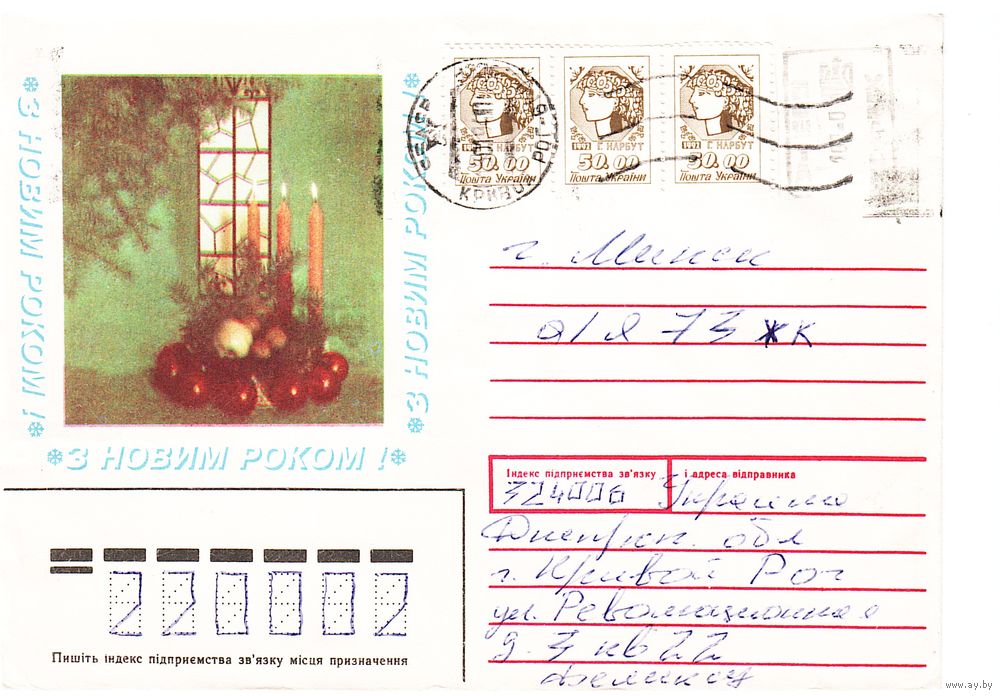 З НОВИМ РОКОМ !
З НОВИМ РОКОМ !
З НОВИМ РОКОМ !
КРИВОЙ РОГ-6
1992 Г. НАРБУТ
50.00
Пошта України
1992 Г. НАРБУТ
50.00
Пошта України
1992 Г. НАРБУТ
50.00
Пошта України
г. Минск
а/я 73 жк
Індекс підприємства зв'язку і адреса відправника
324006 Украина
обл
г. Кривой Рог
ул. Революционная
д. 3 кв 22
220002
Пишіть індекс підприємства зв'язку місця призначення
www.ay.by